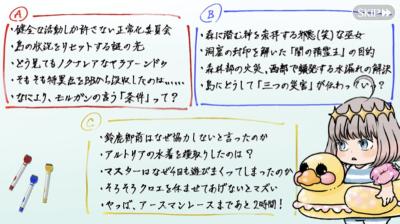 SKIP
A
・健全な活動しか許さない正常化委員会
・島の状況をリセットする謎の光
・どう見てもノクナレアなヤラアーンドゥ
・そもそも特異点をBBから誤収したのは……
・なにより、モルガンの言う「条件」って?
B
・森に潜む神を崇拝する邪悪(笑)な巫女
・洞窟の封印を解いた「闇の積霊王」の目的
・森林部の火災、西部で頻発する水漏れの解決
・島にどうして「三つの災害」が伝わっ(い)?
C
・鈴鹿御前はなぜ協力しないと言ったのか
・アルトリアの水着を横取りしたのは?
・マスターはなぜ4日も遊びまくってしまったのか
・そろそろクロエを休ませてあげないとマズい
・やっば、アースマンレースまであと2時間!